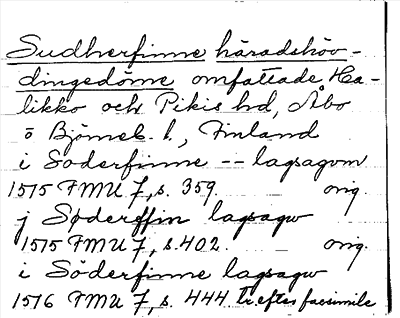 Sudherfinne häradshöv-
dingedöme omfattade Ha-
likko och Pikis hd, Åbo
o Björneb. l., Finland
i Söderfinne -- lagsagvm
1575 FMU 7, s. 359. orig.
j Søderffin lagsagw
1575 FMU 7, s. 402. orig.
i Söderfinne lagsagw
1576 FMU 7, s. 444 tr. efter facsimile